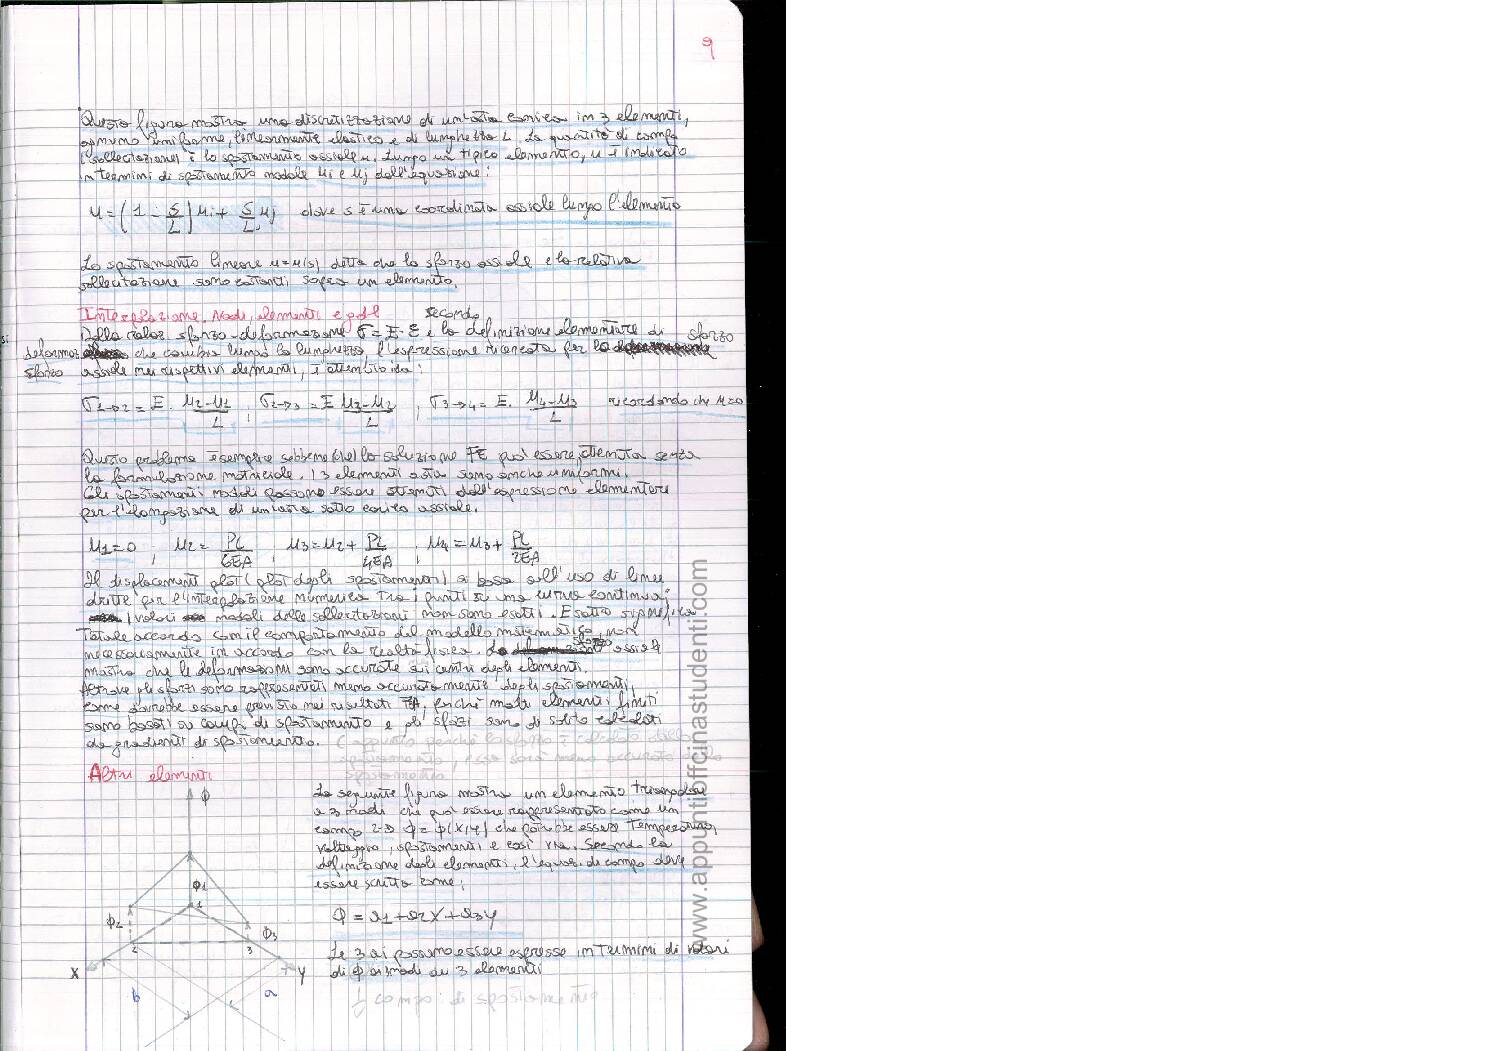 9
Questa figura mostra una discretizzazione di un'asta conica in 3 elementi,
ognuno uniforme, linearmente elastico e di lunghezza L. La quantità di campo
(sollecitazione) è lo spostamento assiale u. Lungo un tipico elemento, u è indicato
in termini di spostamento nodale ui e uj dall'equazione:
u = (1 - s/L) ui + s/L uj dove s è una coordinata assiale lungo l'elemento
Lo spostamento lineare u=u(s) detta che lo sforzo assiale e la relativa
sollecitazione sono costanti sopra un elemento.
Interpolazione, Nodi, elementi e gdl
secondo
Dalla relaz sforzo-deformazione σ=E·ε e la definizione elementare di sforzo
deformaz che cambia lungo la lunghezza, l'espressione ricercata per lo
sforzo assiale nei rispettivi elementi, è attribuita:
σ1→2 = E. u2-u1/L ; σ2→3 = E u3-u2/L ; σ3→4 = E. u4-u3/L ricordando che u1=0
Questo problema è semplice sebbene che la soluzione FE può essere ottenuta senza
la formulazione matriciale. I 3 elementi asta sono anche uniformi.
Gli spostamenti nodali possono essere ottenuti dall'espressione elementare
per l'elongazione di un'asta sotto carico assiale.
u1=0 ; u2= PL/6EA ; u3=u2+ PL/4EA ; u4=u3+ PL/2EA
Il displacement plot (plot degli spostamenti) si basa sull'uso di linee
dritte per l'interpolazione numerica tra i punti su una curva continua;
i valori nodali delle sollecitazioni non sono esatti. Esatto significa
totale accordo con il comportamento del modello matematico, non
necessariamente in accordo con la realtà fisica. Lo sforzo assiale
mostra che le deformazioni sono accurate ai centri degli elementi.
Altrove gli sforzi sono rappresentati meno accuratamente degli spostamenti,
come dovrebbe essere previsto nei risultati FEA, perché molti elementi finiti
sono basati su campi di spostamento e gli sforzi sono di solito calcolati
da gradienti di spostamento. (appunto perché lo sforzo è calcolato dallo
spostamento, esso sarà meno accurato dello
spostamento
Altri elementi
La seguente figura mostra un elemento triangolare
a 3 nodi che può essere rappresentato come un
campo 2-D ϕ = ϕ(x,y) che potrebbe essere temperatura,
voltaggio, spostamenti e così via. Secondo la
definizione degli elementi, l'equaz. di campo deve
essere scritta come:
ϕ = a1+a2x+a3y
Le 3 ai possono essere espresse in termini di valori
di ϕ ai nodi dei 3 elementi
campo: di spostamento
ϕ
ϕ1
1
ϕ2
2
ϕ3
3
x
y
b
a
www.appuntiofficinastudenti.com